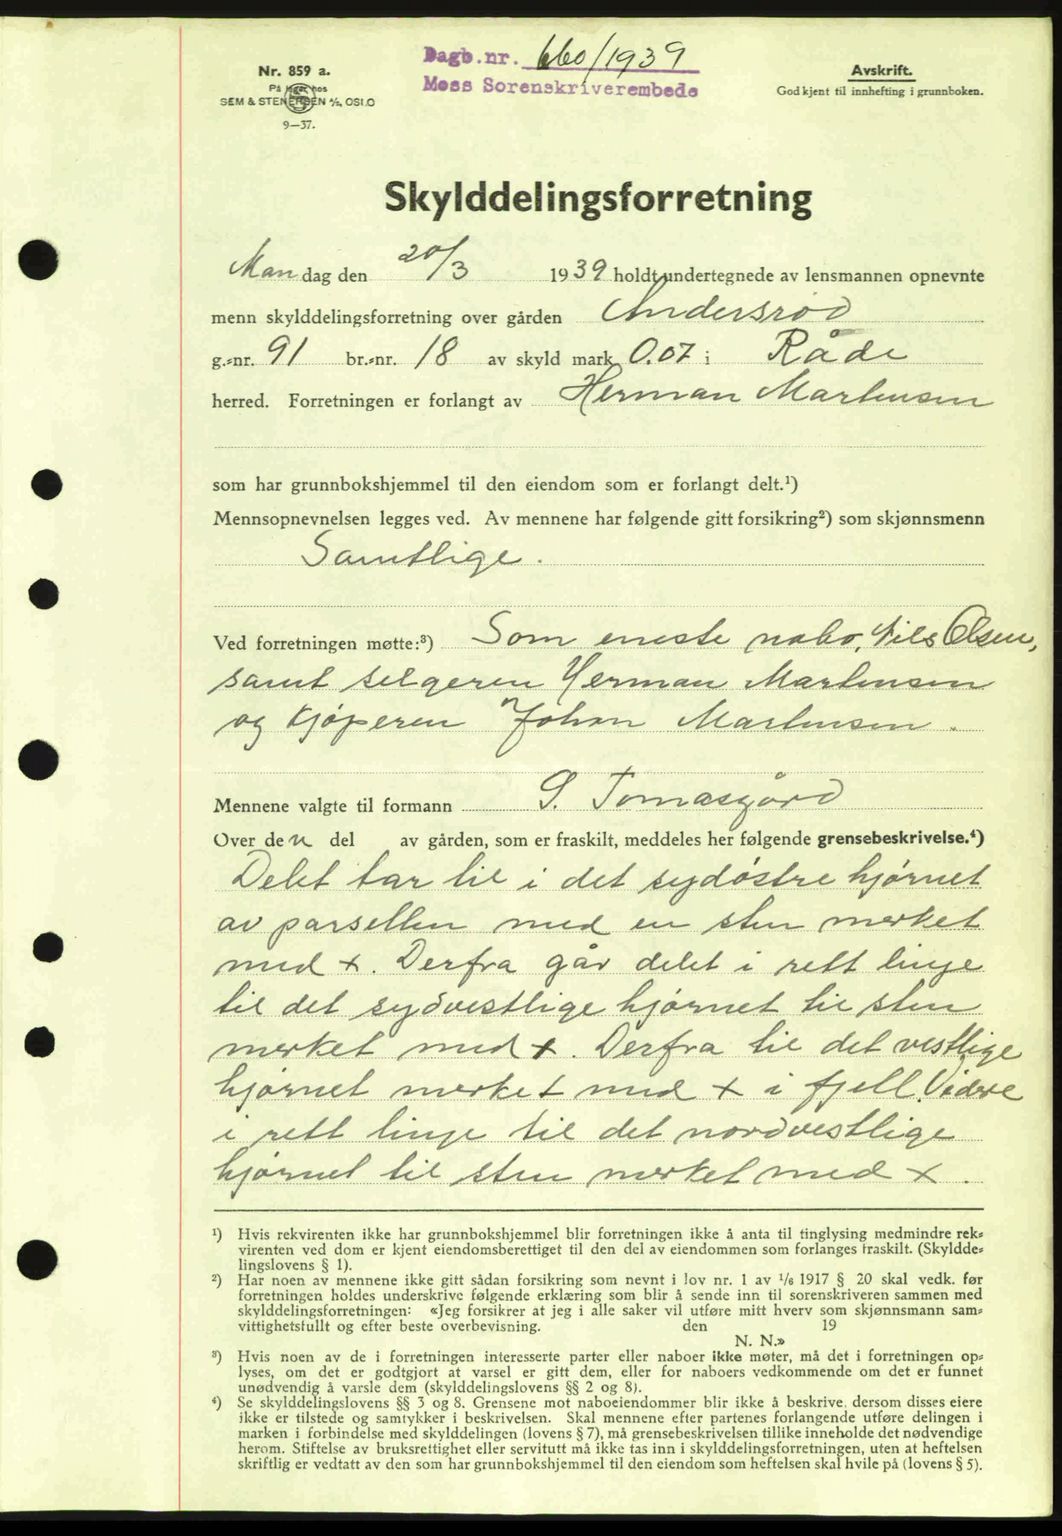 Dagb.nr. 660/1939
Moss Sorenskriverembede
Nr. 859 a.
På lager hos
SEM & STENERSEN A/S, OSLO
9—37.
Avskrift.
Godkjent til innhefting i grunnboken.
Skylddelingsforretning
Mandag den 20/3 1939 holdt undertegnede av lensmannen opnevnte
menn skylddelingsforretning over gården Andersrød
g.-nr. 91 br.-nr. 18 av skyld mark 0.07 i Råde
herred. Forretningen er forlangt av Herman Martensen
som har grunnbokshjemmel til den eiendom som er forlangt delt.¹)
Mennsopnevnelsen legges ved. Av mennene har følgende gitt forsikring²) som skjønnsmenn
Samtlige.
Ved forretningen møtte:³) Som eneste nabo, Nils Olsen,
samt selgeren Herman Martensen
og kjøperen Johan Martensen.
Mennene valgte til formann S. Tomasgård
Over den del av gården, som er fraskilt, meddeles her følgende grensebeskrivelse.⁴)
Delet tar til i det sydøstre hjørnet
av parsellen med en sten merket
med x. Derfra går delet i rett linje
til det sydvestlige hjørnet til sten
merket med x. Derfra til det vestlige
hjørnet merket med x i fjell. Videre
i rett linje til det nordvestlige
hjørnet til sten merket med x.
¹) Hvis rekvirenten ikke har grunnbokshjemmel blir forretningen ikke å anta til tinglysing medmindre rek-
virenten ved dom er kjent eiendomsberettiget til den del av eiendommen som forlanges fraskilt. (Skyldde-
lingslovens § 1).
²) Har noen av mennene ikke gitt sådan forsikring som nevnt i lov nr. 1 av 1/6 1917 § 20 skal vedk. før
forretningen holdes underskrive følgende erklæring som blir å sende inn til sorenskriveren sammen med
skylddelingsforretningen: «Jeg forsikrer at jeg i alle saker vil utføre mitt hverv som skjønnsmann sam-
vittighetsfullt og efter beste overbevisning. den 19
N. N.»
³) Hvis noen av de i forretningen interesserte parter eller naboer ikke møter, må det i forretningen op-
lyses, om det er godtgjort at varsel er gitt dem, eller for naboers vedkommende om det er funnet
unødvendig å varsle dem (skylddelingslovens §§ 2 og 8).
⁴) Se skylddelingslovens §§ 3 og 8. Grensene mot naboeiendommer blir ikke å beskrive, dersom disses eiere
ikke er tilstede og samtykker i beskrivelsen. Skal mennene efter partenes forlangende utføre delingen i
marken i forbindelse med skylddelingen (lovens § 7), må grensebeskrivelsen tillike inneholde det nødvendige
herom. Stiftelse av bruksrettighet eller servitutt må ikke tas inn i skylddelingsforretningen, uten at heftelsen
skriftlig er vedtatt av den som har grunnbokshjemmel til den eiendom som heftelsen skal hvile på (lovens § 5).